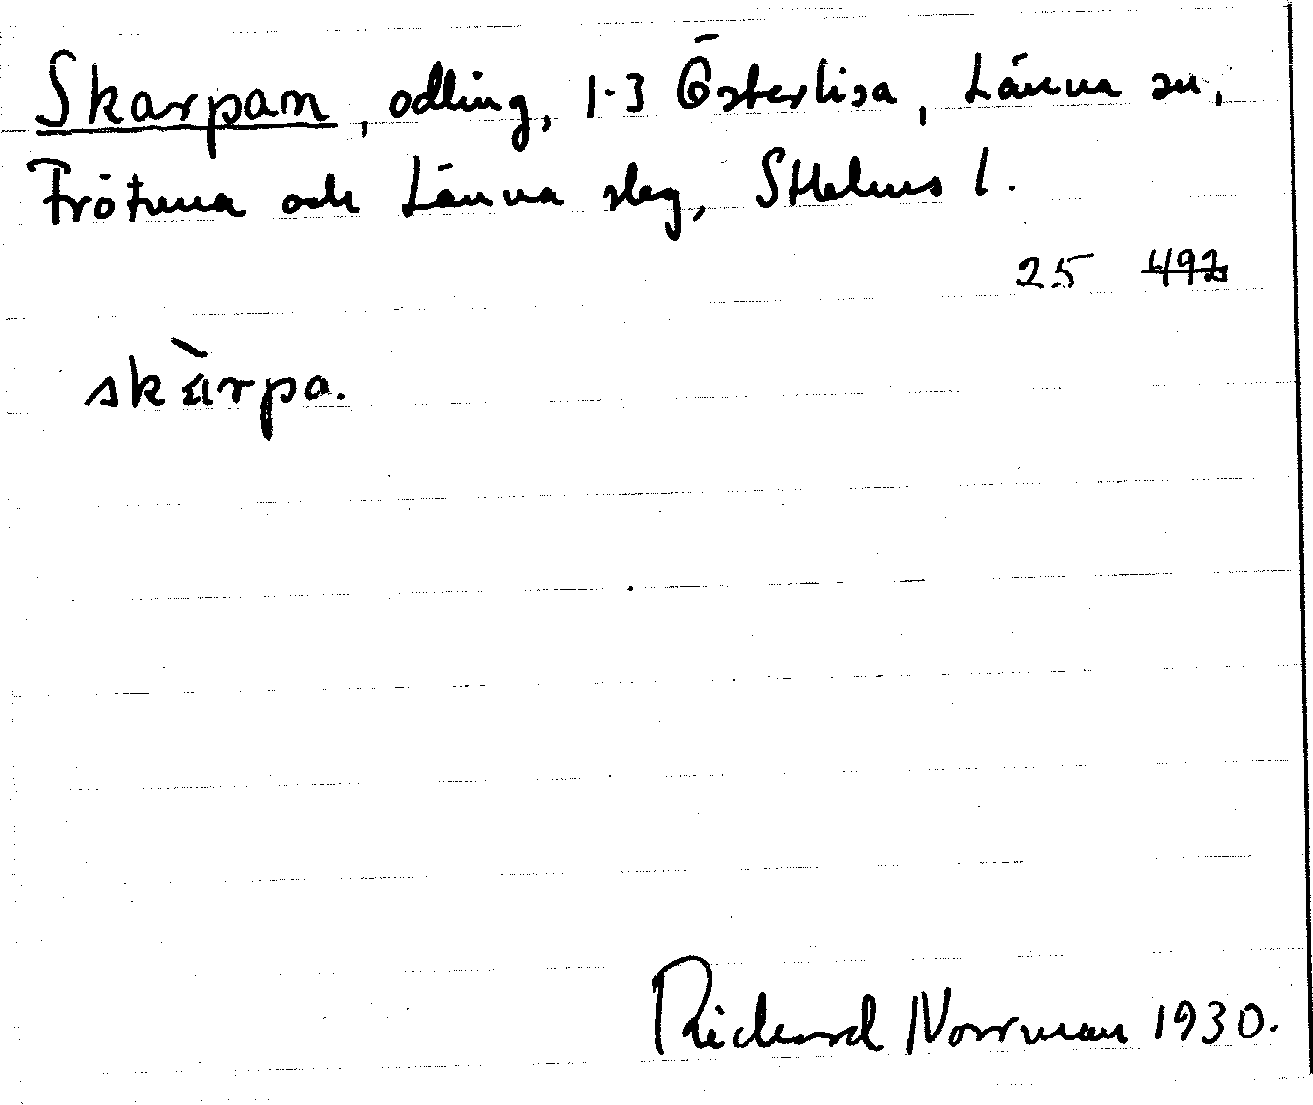 Skarpan, odling, 1-3 Österlisa, Länna sn,
Frötuna och Länna slag, Sthlms l.
25 492
skàrpa.
Richard Norrman 1930.